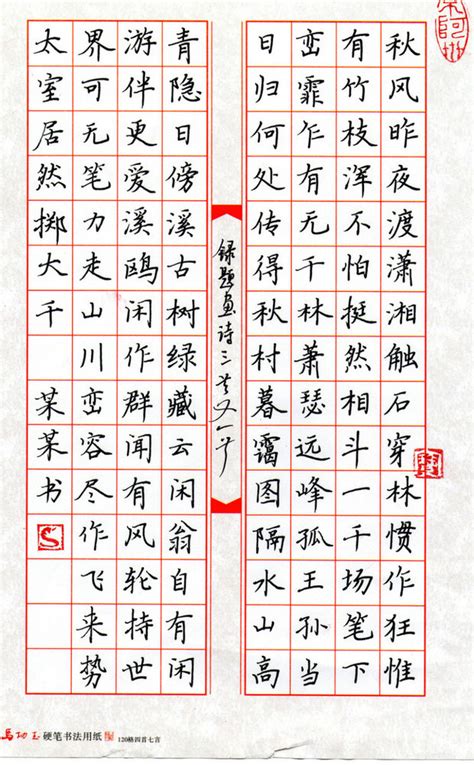 秋风昨夜渡潇湘触石穿林惯作狂惟
有竹枝浑不怕挺然相斗一千场笔下
峦霏乍有无千林萧瑟远峰孤王孙当
日归何处传得秋村暮霭图隔水山高
录题画诗三首又一首
青隐日傍溪古树绿藏云闲翁自有闲
游伴更爱溪鸥闲作群闻有风轮持世
界可无笔力走山川峦容尽作飞来势
太室居然掷大千 某某书
硬笔书法用纸 120格四首七言